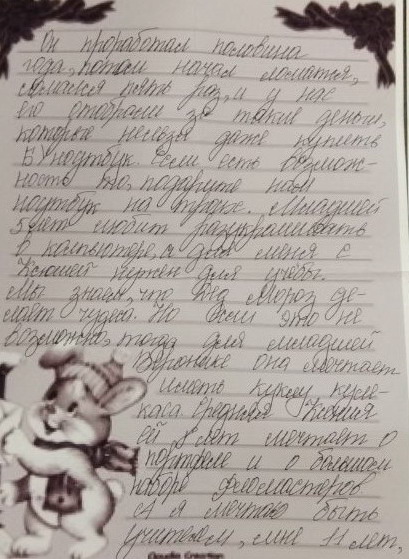 Он проработал половина
года, потом начал ломатся,
ломался пять раз, и у нас
его отобрали за такие деньги,
которые нельзя даже купить
Б/У ноутбук. Если есть возмож-
ность то, подарите нам
ноутбук на троих. Младшей
5 лет любит разукрашивать
в компьютере, а для меня с
Ксюшей нужен для учёбы.
Мы знаем, что Дед Мороз де-
лает чудеса. Но если это не
возможно, тогда для младшей
Веронике она мечтает
иметь куклу
Средняя Ксения
ей 8 лет мечтает о
портфеле и о большом
наборе фломастеров
А я мечтаю быть
учителем, мне 11 лет,